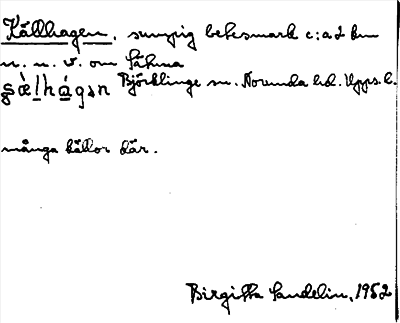 Källhagen, sumpig betesmark c:a 2 km
n. n. v. om Sätuna
Björklinge sn. Norunda hd. Upps. l.
många källor där.
Birgitta Sandelin, 1952